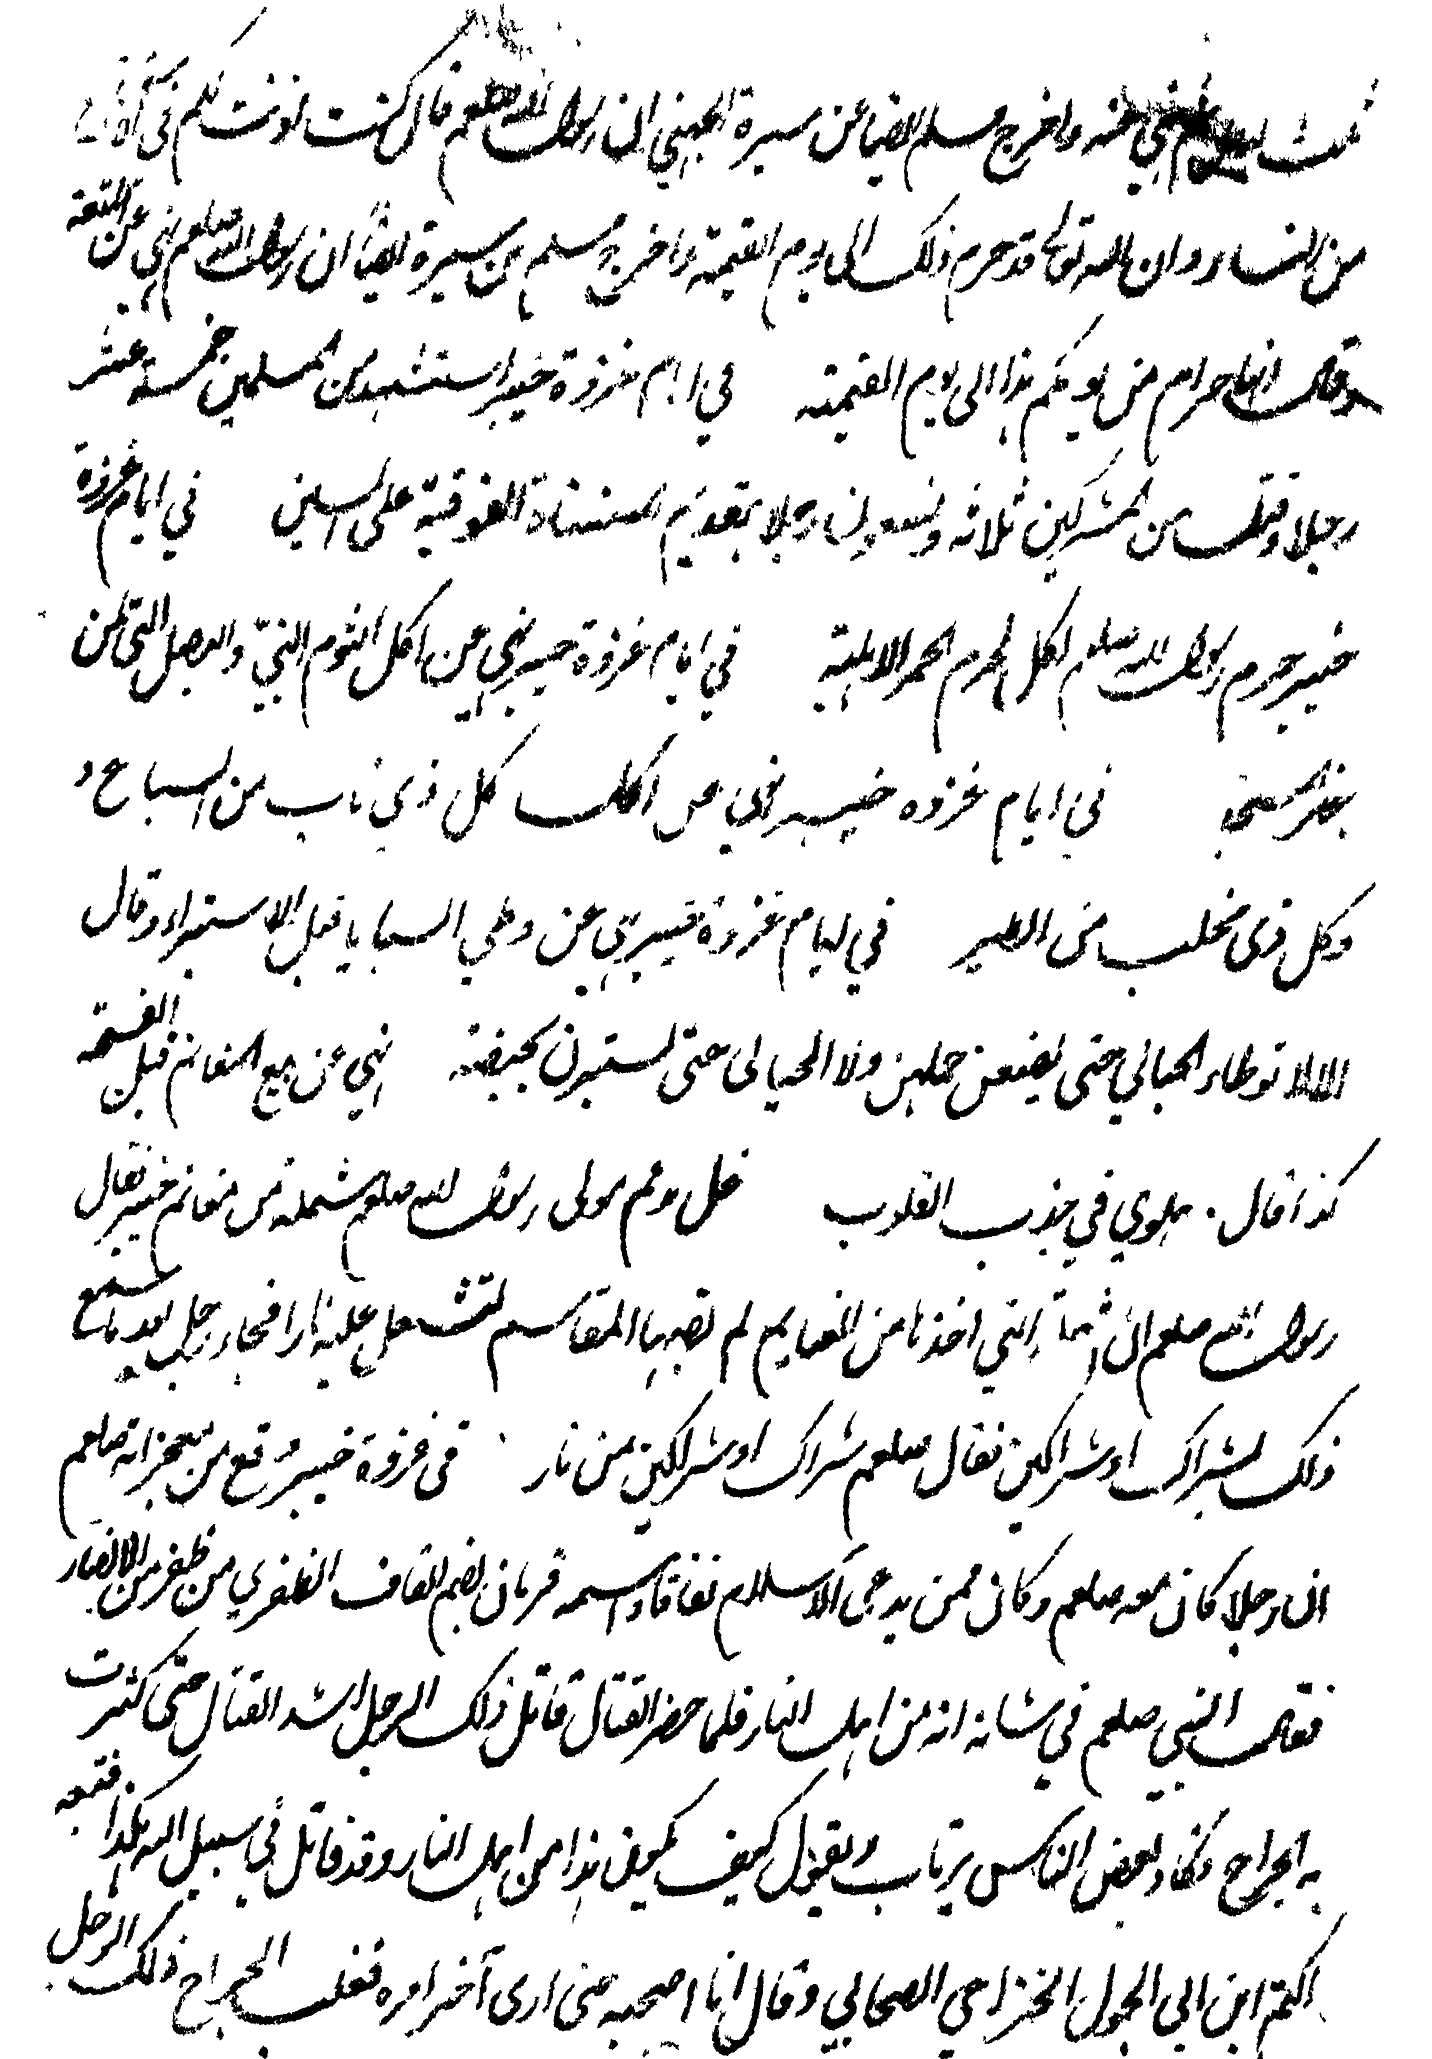 ثلث ثم نهي عنه واخرج مسلم ايضا عن سبرة الجهني ان رسول الله صلعم قال كنت اذنت لكم في
من النساء وان الله تعالى قد حرم ذلك الى يوم القيمة واخرج مسلم عن سبرة ايضًا ان رسول الله صلعم نهي عن المتعة
وقال انها حرام من يومكم هذا الى يوم القيمته في ايام غزوة خيبر استشهد من المسلمين خمسة عشر
رجلا وقتل من المشركين ثلاثه وتسعون رجلا بتقديم المثناة الفوقية على السين في ايام غزوة
خيبر حرم رسول الله صلعم اكل لحوم الحمر الاهلية في ايام غزوة خيبر نهي عن اكل الثوم النيّ والبصل التي لمن
في ايام غزوه خيبر نهي عن اكل كل ذي ناب من السباع و
وكل ذى مخلب من الطير في ايام غزوة خيبر نهي عن وطي السبايا قبل الاستبراء وقال
الا لا توطاء الحبالي حتى يضعن حملهن ولا الحيالى حتى تستبرن بحيضة نهي عن بيع المغانم قبل القسمة
كذا قال دهلوي في جذب القلوب غل مدعم مولى رسول الله صلعم شملة من مغانم خيبر فقال
رسول الله صلعم ان الشملة التي اخذها من المغانم لم تصبها المقاسم لتشتعل عليه نارا فجاء رجل بعد ما سمع
ذلك بشراك او شراكين فقال صلعم شراك او شراكين من نار في غزوة خيبر وقع من معجزاته صلعم
ان رجلا كان معه صلعم وكان ممن يدعى الاسلام نفاقا واسمه قزمان بضم القاف الظفري من ظفر من الانصار
فقال النبي صلعم في شانه انه من اهل النار فلما حضر القتال قاتل ذلك الرجل اشد القتال حتى كثرت
به الجراح وكاد بعض الناس يرتاب ويقول كيف يكون هذا من اهل النار وقد قاتل في سبيل الله هكذا فتبعه
اكثم ابن ابي الجون الخزاعي الصحابي وقال انا اصحبه حتى ارى آخر امره فغلب الجراح ذلك الرجل